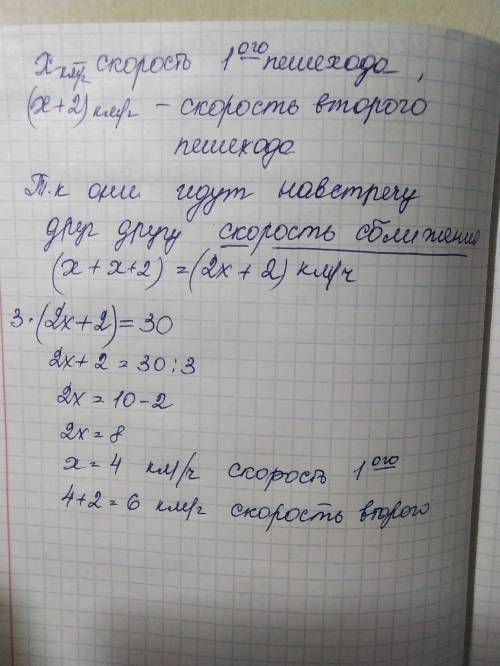 x км/ч скорость 1ого пешехода,
(x+2) км/ч – скорость второго
пешехода
Т.к они идут навстречу
друг другу скорость сближения
(x + x+2) = (2x + 2) км/ч
3·(2x+2)=30
2x+2 = 30:3
2x = 10-2
2x = 8
x = 4 км/ч скорость 1ого
4+2=6 км/ч скорость второго